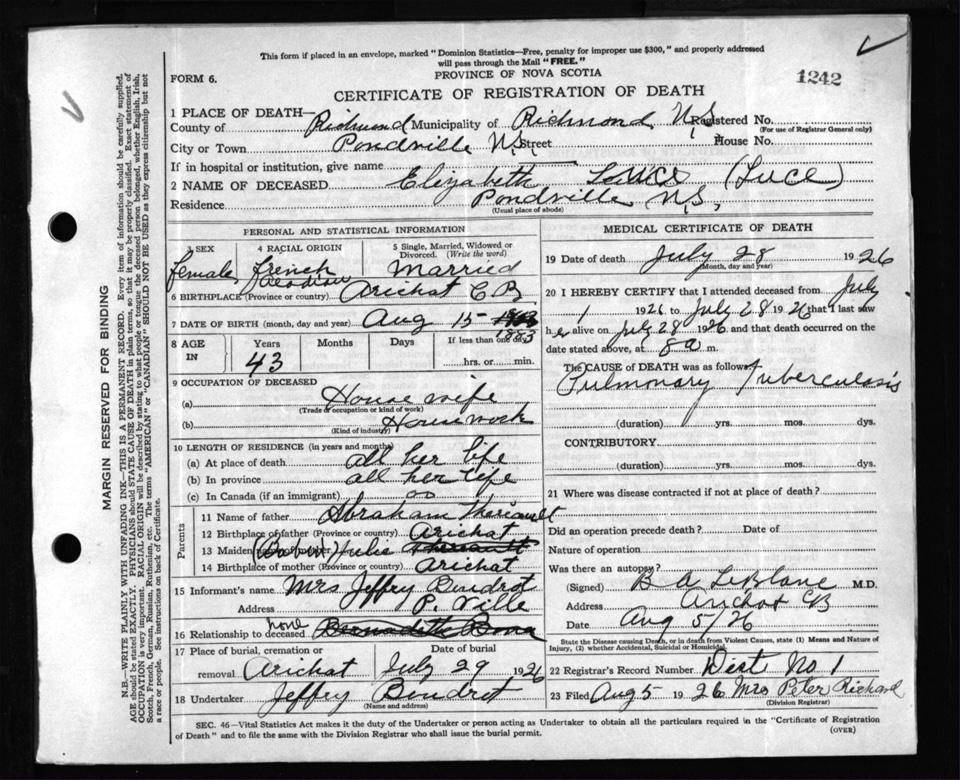 This form if placed in an envelope, marked "Dominion Statistics—Free, penalty for improper use $300," and properly addressed
will pass through the Mail "FREE."
PROVINCE OF NOVA SCOTIA
FORM 6.
1242
CERTIFICATE OF REGISTRATION OF DEATH
1 PLACE OF DEATH—
County of Richmond Municipality of Richmond N.S. Registered No.
(For use of Registrar General only)
City or Town Pondville N.S. Street House No.
If in hospital or institution, give name
2 NAME OF DECEASED Elizabeth (Luce)
Residence Pondville N.S.
(Usual place of abode)
PERSONAL AND STATISTICAL INFORMATION
3 SEX 4 RACIAL ORIGIN 5 Single, Married, Widowed or Divorced. (Write the word)
female French Acadian Married
6 BIRTHPLACE (Province or country) Arichat C.B.
7 DATE OF BIRTH (month, day and year) Aug 15 1883
8 AGE IN Years Months Days If less than one day
43 hrs. or min.
9 OCCUPATION OF DECEASED
(a) House wife
(Trade or occupation or kind of work)
(b) House work
(Kind of industry)
10 LENGTH OF RESIDENCE (in years and months)
(a) At place of death all her life
(b) In province all her life
(c) In Canada (if an immigrant)
Parents
11 Name of father Abraham Theriault
12 Birthplace of father (Province or country) Arichat
13 Maiden name of mother (Boberi) Julie Theriault
14 Birthplace of mother (Province or country) Arichat
15 Informant's name Mrs Jeffry Boudrot
Address P. Ville
16 Relationship to deceased none
17 Place of burial, cremation or removal Date of burial
Arichat July 29 1926
18 Undertaker Jeffry Boudrot
(Name and address)
MEDICAL CERTIFICATE OF DEATH
19 Date of death July 28 1926
(Month, day and year)
20 I HEREBY CERTIFY that I attended deceased from July
1 1926 to July 28 1926 that I last saw
her alive on July 28 1926 and that death occurred on the
date stated above, at 8 a m.
The CAUSE OF DEATH was as follows:
Pulmonary Tuberculosis
(duration) yrs. mos. dys.
CONTRIBUTORY.
(duration) yrs. mos. dys.
21 Where was disease contracted if not at place of death?
Did an operation precede death? Date of
Nature of operation.
Was there an autopsy?
(Signed) B A LeBlanc M.D.
Address Arichat CB
Date Aug 5/26
State the Disease causing Death, or in death from Violent Causes, state (1) Means and Nature of
Injury, (2) whether Accidental, Suicidal or Homicidal.
22 Registrar's Record Number Dist No 1
23 Filed Aug 5 1926 Mrs Peter Richard
(Division Registrar)
SEC. 46—Vital Statistics Act makes it the duty of the Undertaker or person acting as Undertaker to obtain all the particulars required in the "Certificate of Registration
of Death" and to file the same with the Division Registrar who shall issue the burial permit.
(OVER)
MARGIN RESERVED FOR BINDING
N.B.—WRITE PLAINLY WITH UNFADING INK—THIS IS A PERMANENT RECORD. Every item of information should be carefully supplied.
AGE should be stated EXACTLY. PHYSICIANS should STATE CAUSE OF DEATH in plain terms, so that it may be properly classified. Exact statement of
OCCUPATION is very important. RACIAL ORIGIN will be described by stating to what people or tongue the deceased person belonged, whether English, Irish,
Scotch, French, German, Russian, Ruthenian, etc. The terms "AMERICAN" or "CANADIAN" SHOULD NOT BE USED as they express citizenship but not
a race or people. See instructions on back of Certificate.